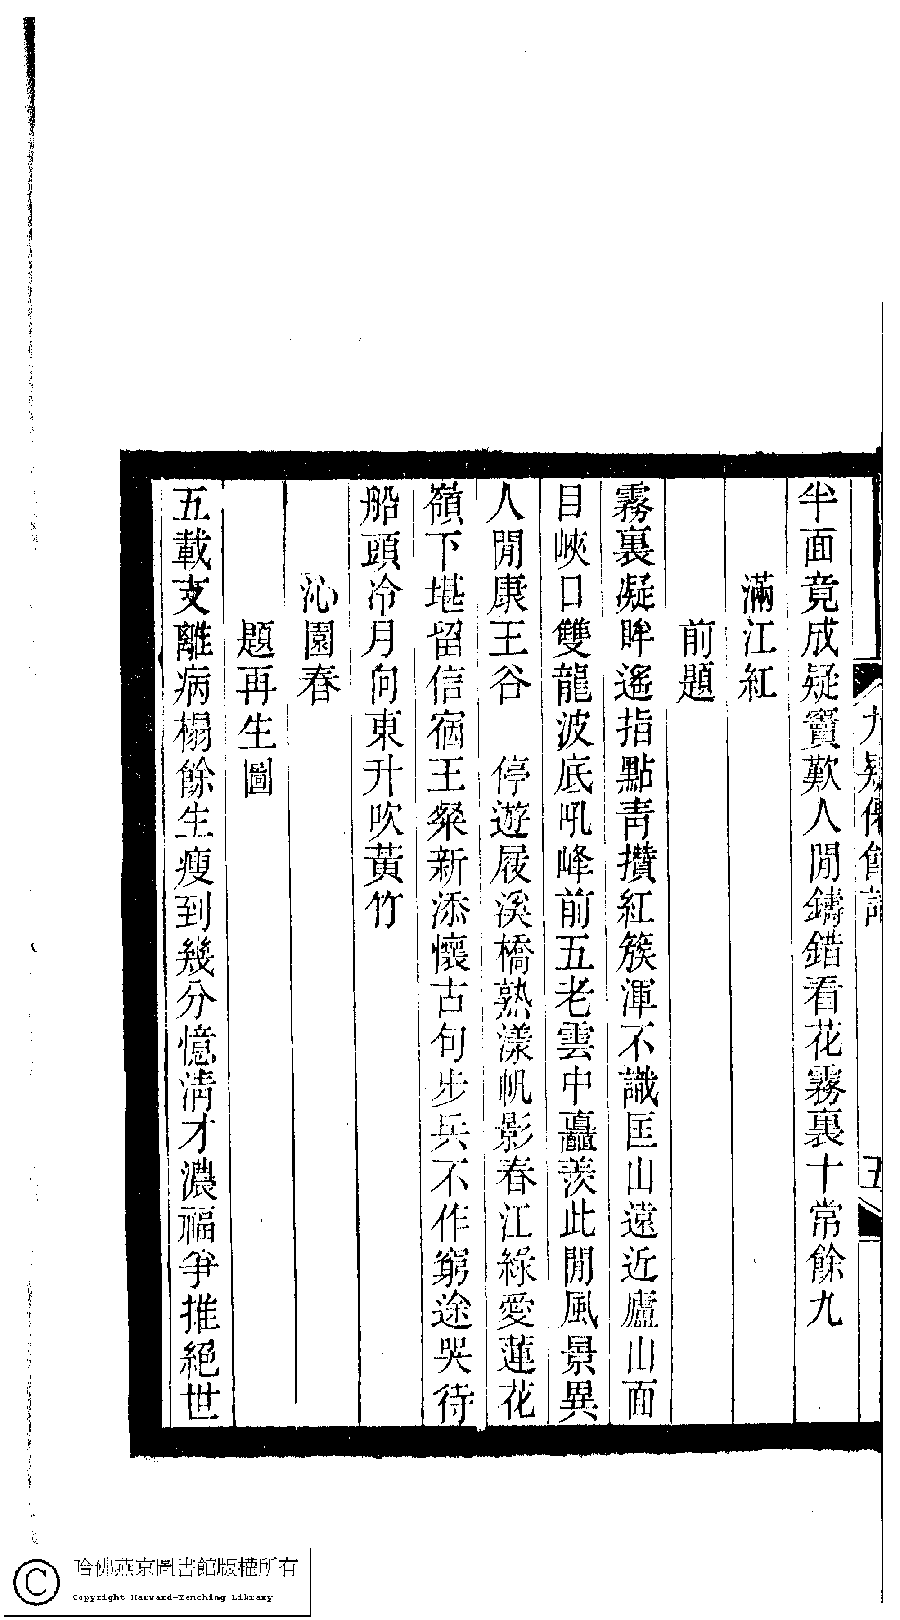 九疑僊館詞
五
半面竟成疑竇歎人閒鑄錯看花霧裏十常餘九
滿江紅
前題
霧裏凝眸遙指點靑攢紅簇渾不識匡山遠近廬山面
目峽口雙龍波底吼峰前五老雲中矗羨此閒風景異
人閒康王谷　停遊屐溪橋熟漾帆影春江綠愛蓮花
嶺下堪留信宿王粲新添懷古句步兵不作窮途哭待
船頭冷月向東升吹黃竹
沁園春
題再生圖
五載支離病榻餘生瘦到幾分憶淸才濃福爭推絕世
哈佛燕京圖書館版權所有
Copyright Harvard-Yenching Library